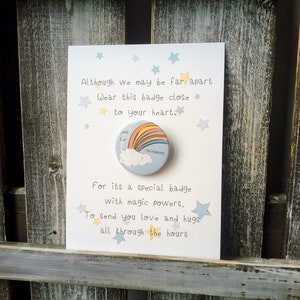 Although we may be far apart
Wear this badge close
to your heart.
For its a special badge
with magic powers,
To send you love and hugs
all through the hours